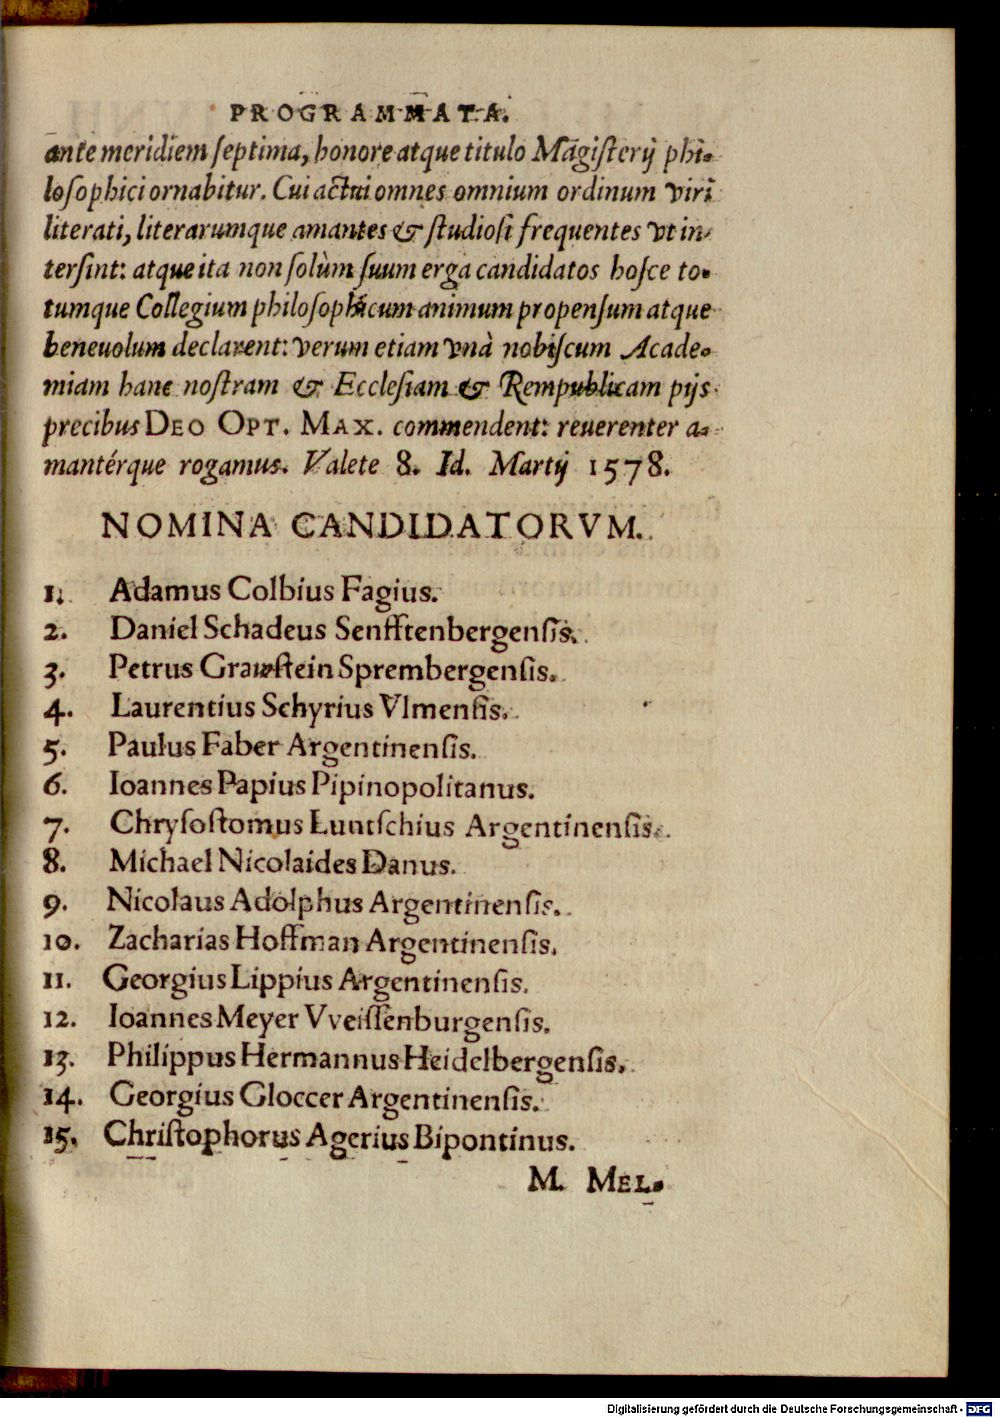 PROGRAMMATA.
ante meridiem ſeptima, honore atque titulo Magiſterij phi-
loſophici ornabitur. Cui actui omnes omnium ordinum viri
literati, literarumque amantes & ſtudioſi frequentes vt in-
terſint: atque ita non ſolùm ſuum erga candidatos hoſce to-
tumque Collegium philoſophicum animum propenſum atque
beneuolum declarent: verum etiam vnà nobiſcum Acade-
miam hanc noſtram & Eccleſiam & Rempublicam pijs
precibus DEO OPT. MAX. commendent: reuerenter a-
mantérque rogamus. Valete 8. Id. Martij 1578.
NOMINA CANDIDATORVM.
1. Adamus Colbius Fagius.
2. Daniel Schadeus Senfftenbergenſis.
3. Petrus Grawſtein Sprembergenſis.
4. Laurentius Schyrius Vlmenſis.
5. Paulus Faber Argentinenſis.
6. Ioannes Papius Pipinopolitanus.
7. Chryſoſtomus Luntſchius Argentinenſis.
8. Michael Nicolaides Danus.
9. Nicolaus Adolphus Argentinenſis.
10. Zacharias Hoffman Argentinenſis.
11. Georgius Lippius Argentinenſis.
12. Ioannes Meyer VveiſſenburgenſIs.
13. Philippus Hermannus Heidelbergenſis.
14. Georgius Gloccer Argentinenſis.
15. Chriſtophorus Agerius Bipontinus.
M. MEL-
Digitalisierung gefördert durch die Deutsche Forschungsgemeinschaft - DFG